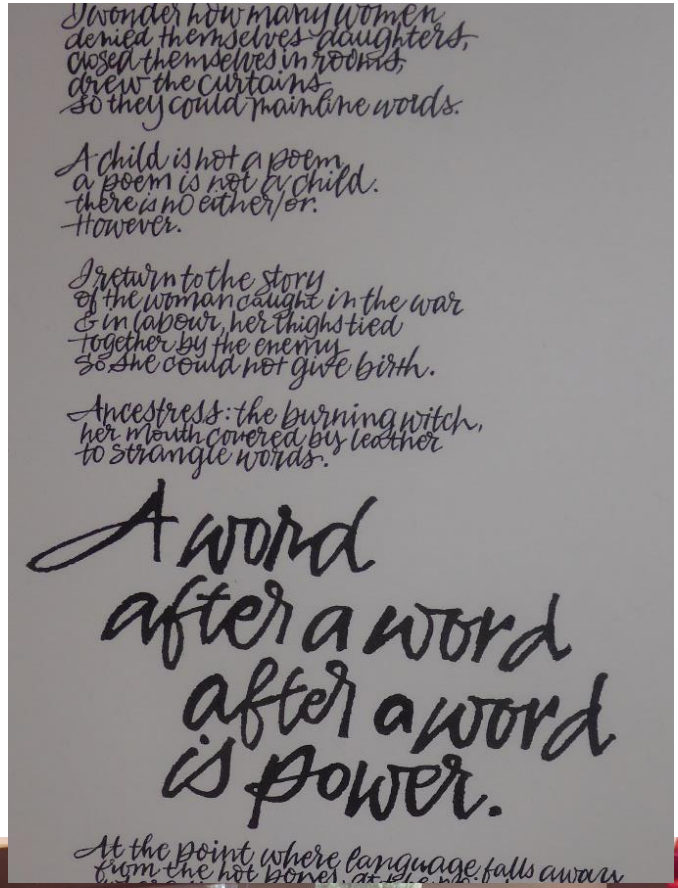 I wonder how many women
denied themselves daughters,
closed themselves in rooms,
drew the curtains
so they could mainline words.
A child is not a poem,
a poem is not a child.
there is no either/or.
However.
I return to the story
of the woman caught in the war
& in labour, her thighs tied
together by the enemy
so she could not give birth.
Ancestress: the burning witch,
her mouth covered by leather
to strangle words.
A word
after a word
after a word
is power.
At the point where language falls away
from the hot bones, at the